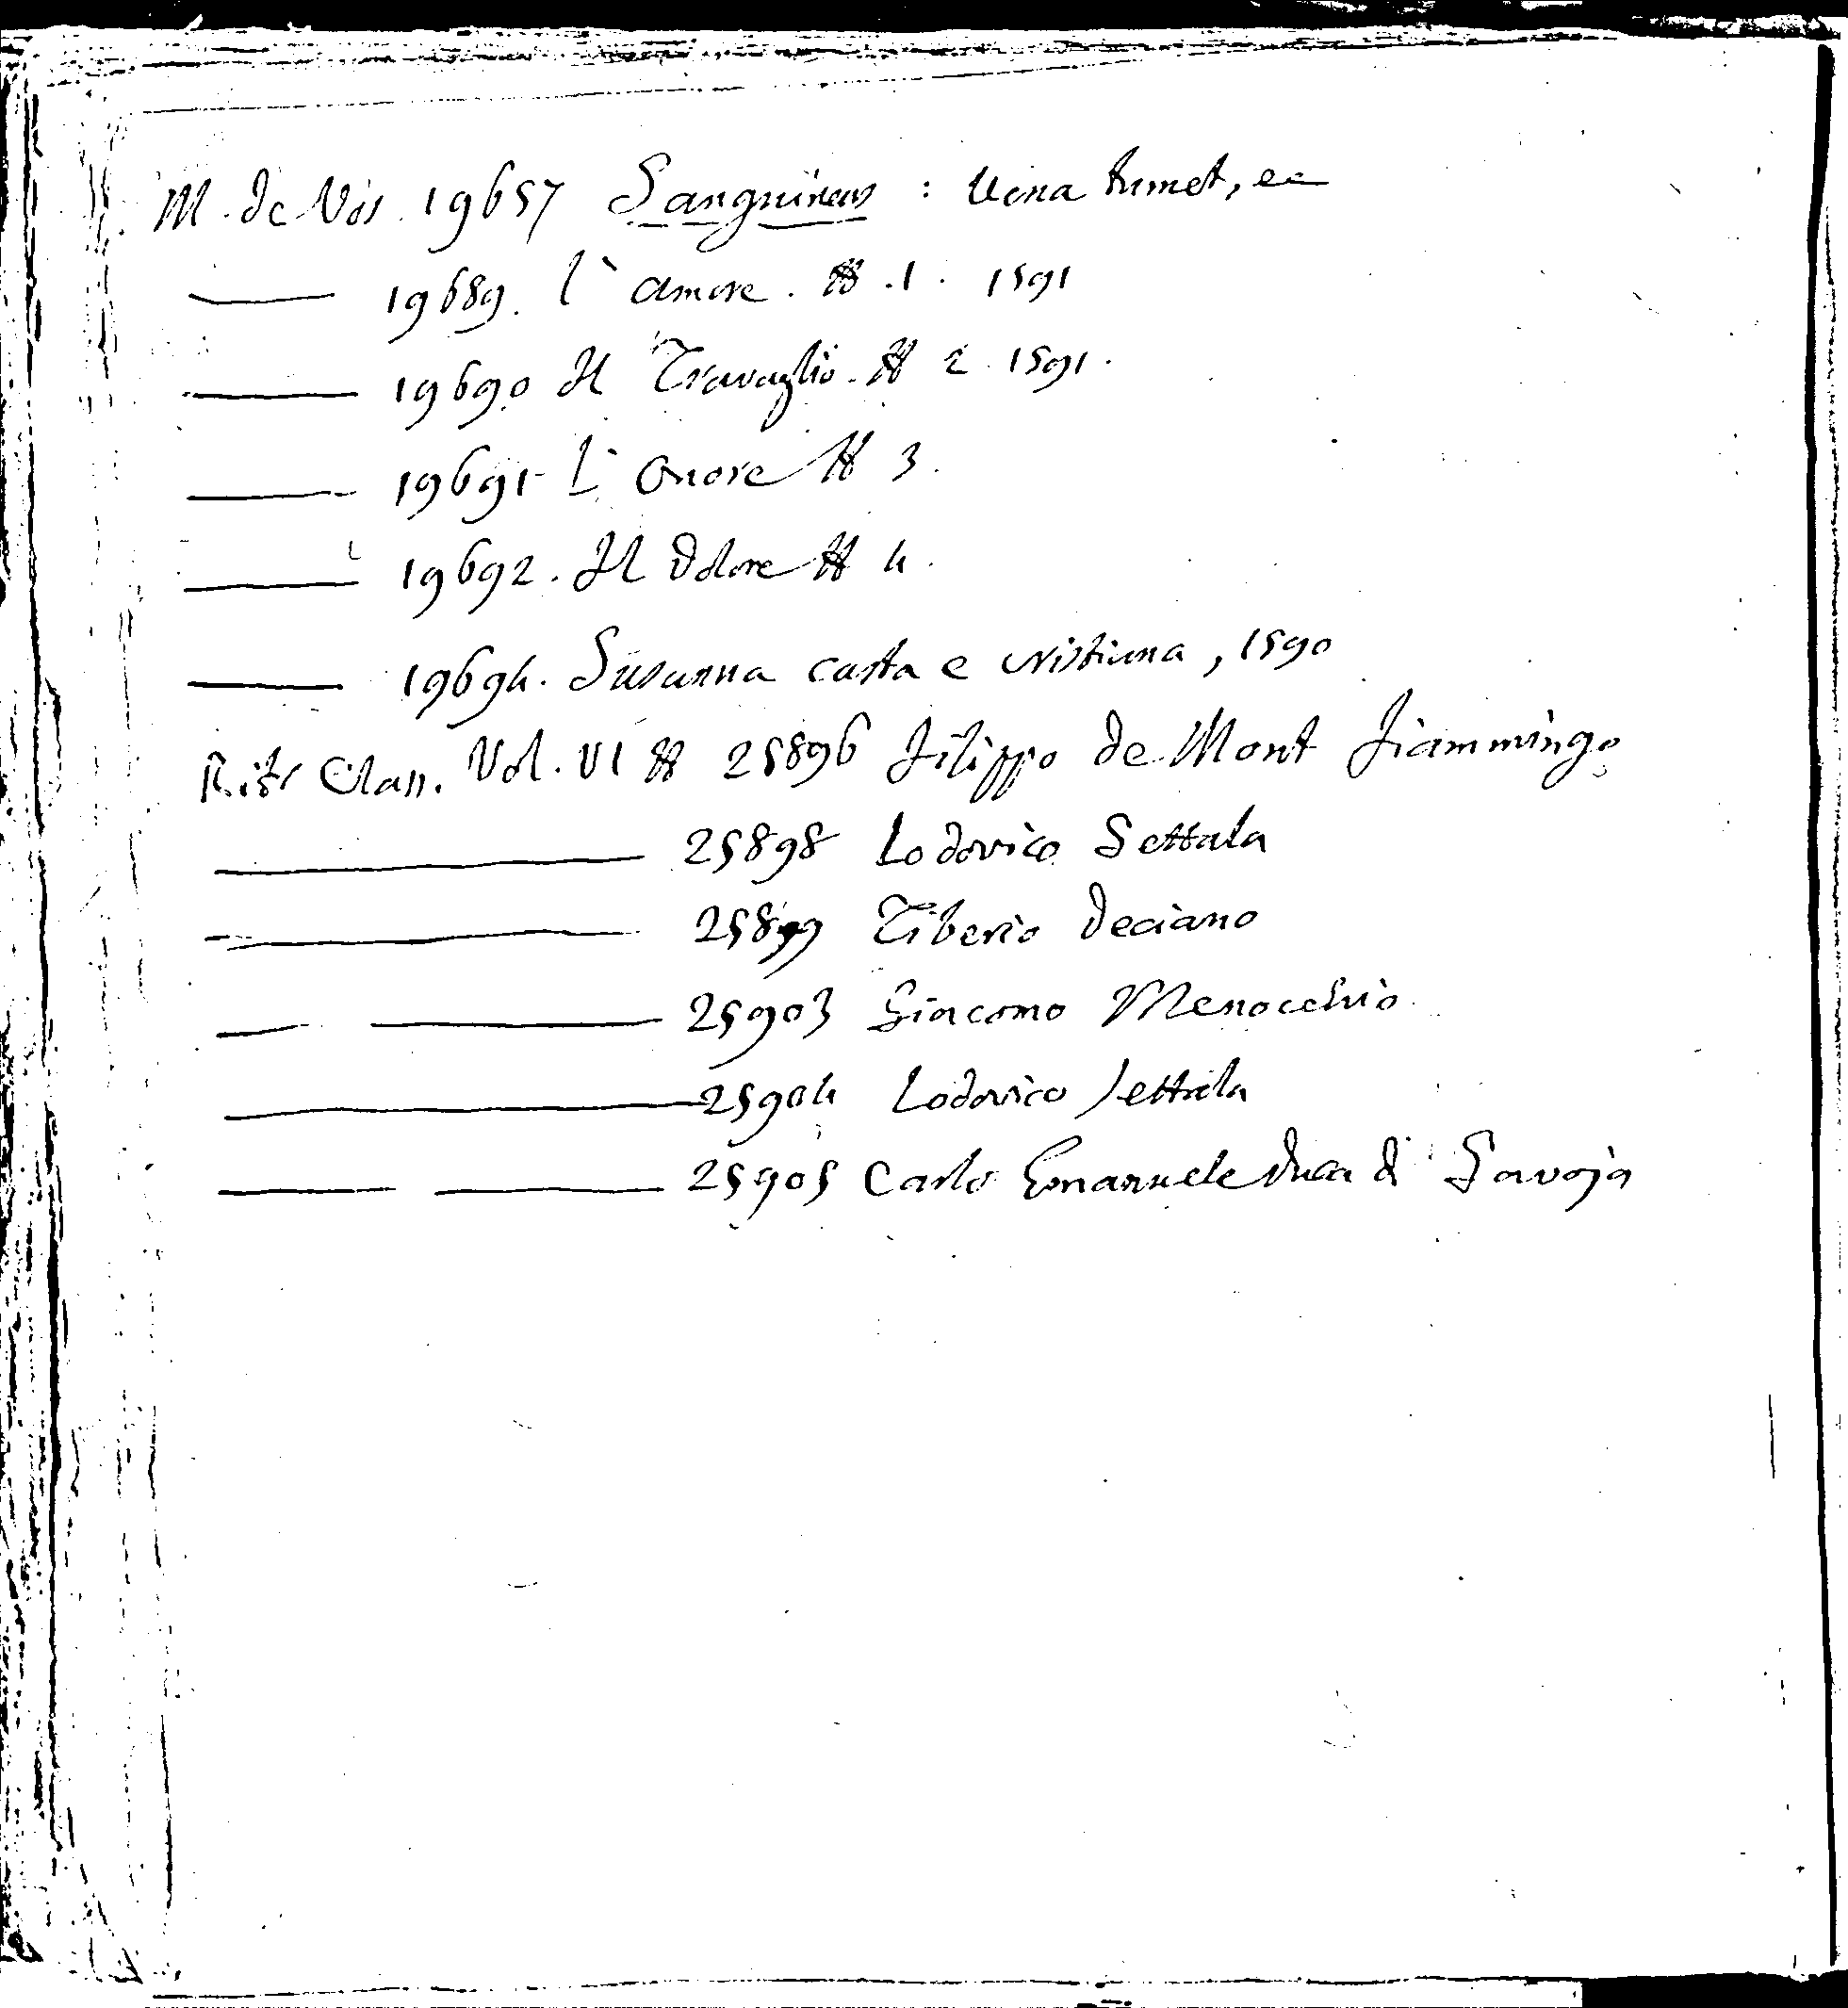 M. de Vos. 19657 Sanguineus : Vena tumet, ec
—— 19689. l'amore. N. 1. 1591
—— 19690 Il Travaglio. N 2. 1591.
—— 19691 L'Onore N 3.
—— 19692. Il Dolore N 4.
—— 19694. Susanna casta e cristiana, 1590
Ritr Class. Vol. VI N 25896 Filippo de Mont fiammingo
—— 25898 Lodovico Settala
—— 25899 Tiberio Deciano
—— —— 25903 Giacomo Menocchio
—— 25904 Lodovico Settala
—— —— 25905 Carlo Emanuele Duca di Savoja